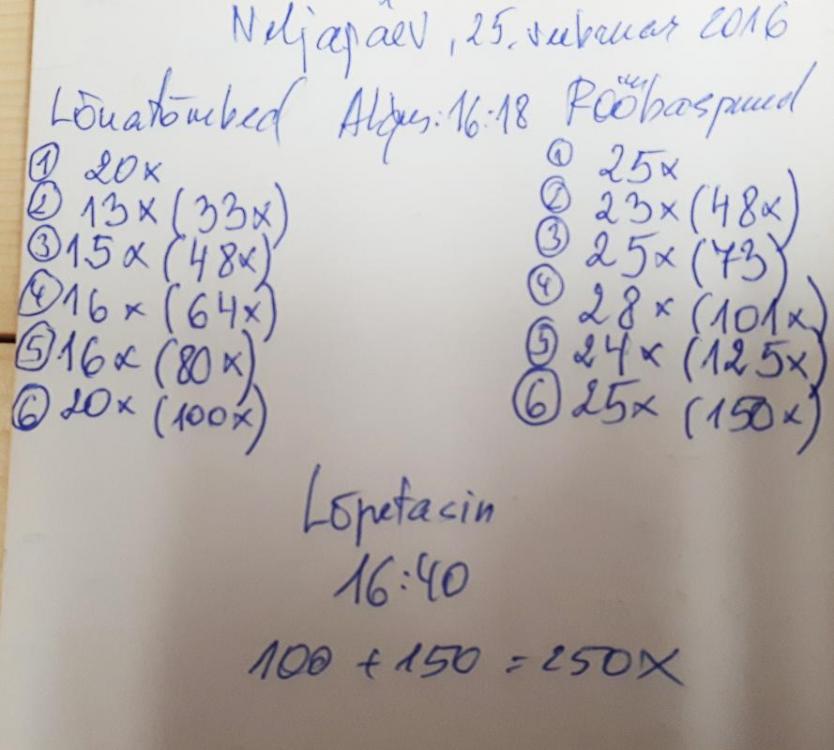 Neljapäev, 25. veebruar 2016
Lõuatõmbed Algus: 16:18 Rööbaspuud
① 20x ① 25x
② 13x (33x) ② 23x (48x)
③ 15x (48x) ③ 25x (73)
④ 16x (64x) ④ 28x (101x)
⑤ 16x (80x) ⑤ 24x (125x)
⑥ 20x (100x) ⑥ 25x (150x)
Lõpetasin
16:40
100 + 150 = 250x